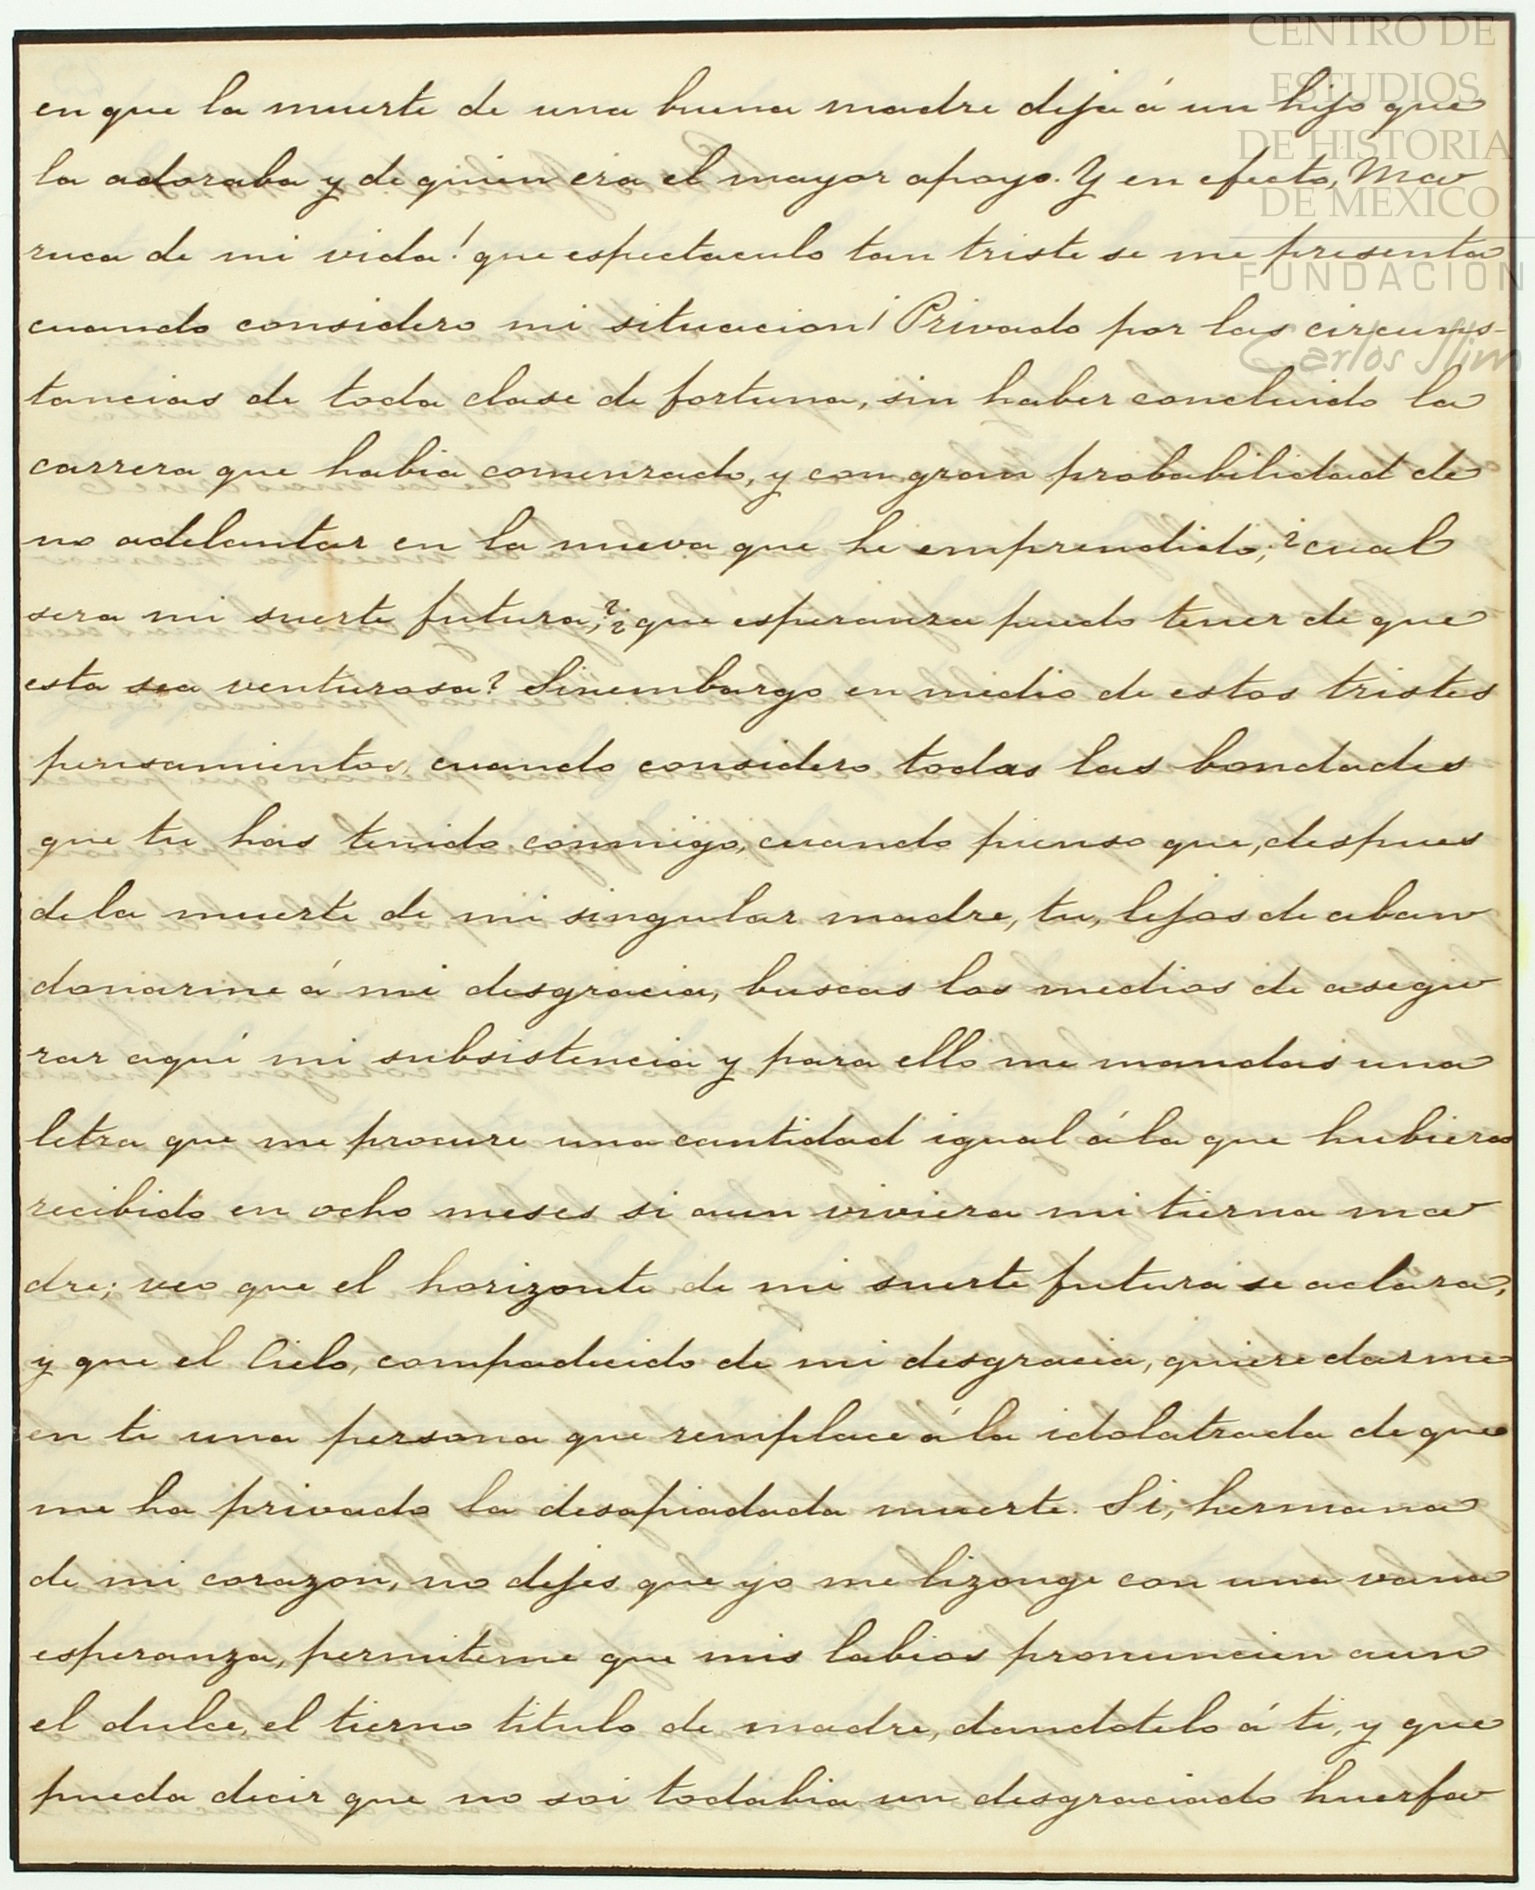 CENTRO DE
ESTUDIOS
DE HISTORIA
DE MEXICO
FUNDACION
Carlos Slim
en que la muerte de una buena madre deja á un hijo que
la adoraba y de quien era el mayor apoyo. Y en efecto, Ma
ruca de mi vida! que espectaculo tan triste se me presenta
cuando considero mi situacion! Privado por las circuns-
tancias de toda clase de fortuna, sin haber concluido la
carrera que habia comenzado, y con gran probabilidad de
no adelantar en la nueva que he emprendido; ¿cual
sera mi suerte futura,? ¿que esperanza puedo tener de que
esta sea venturosa? Sinembargo en medio de estos tristes
pensamientos, cuando considero todas las bondades
que tu has tenido conmigo, cuando pienso que, despues
de la muerte de mi singular madre, tu, lejos de aban
donarme á mi desgracia, buscas los medios de asegu
rar aquí mi subsistencia y para ello me mandas una
letra que me procure una cantidad igual á la que hubiera
recibido en ocho meses si aun viviera mi tierna ma
dre; veo que el horizonte de mi suerte futura se aclara,
y que el Cielo, compadecido de mi desgracia, quiere darme
en ti una persona que remplace á la idolatrada de que
me ha privado la desapiadada muerte. Si, hermana
de mi corazon, no dejes que yo me lizonge con una vana
esperanza, permiteme que mis labios pronuncien aun
el dulce, el tierno titulo de madre, dandotelo á ti, y que
pueda decir que no soi todabia un desgraciado huerfa